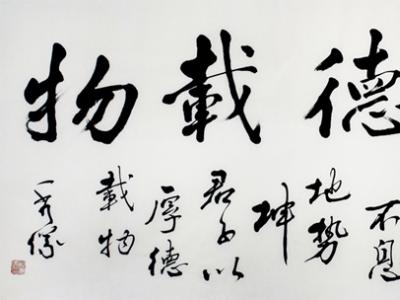 德載物
不息
地勢
坤
君子以
厚德
載物